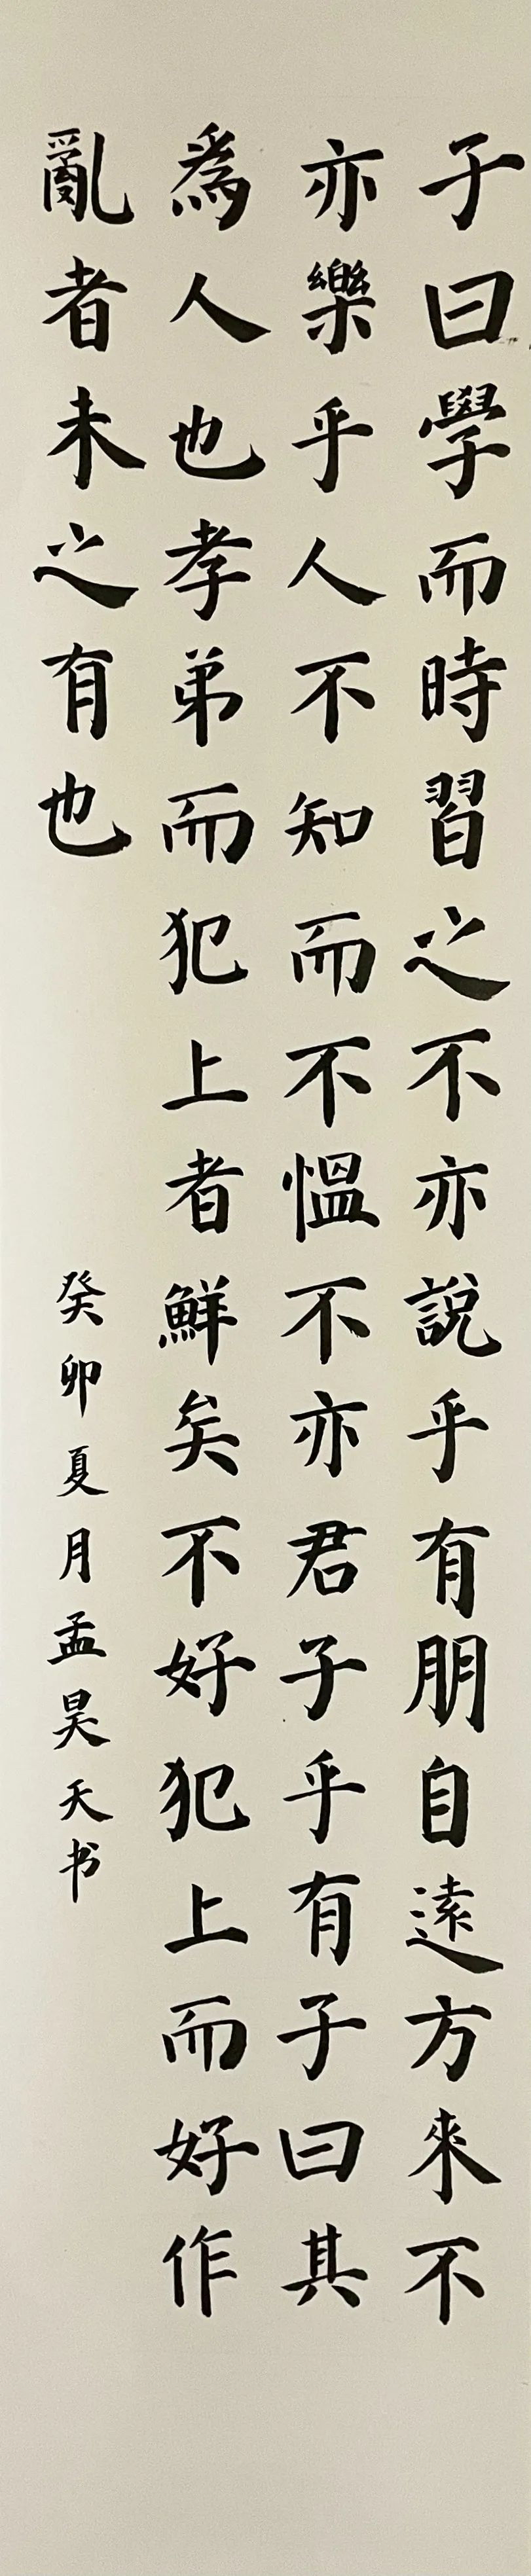 子曰學而時習之不亦說乎有朋自遠方來不
亦樂乎人不知而不慍不亦君子乎有子曰其
為人也孝弟而犯上者鮮矣不好犯上而好作
亂者未之有也
癸卯夏月孟昊天书